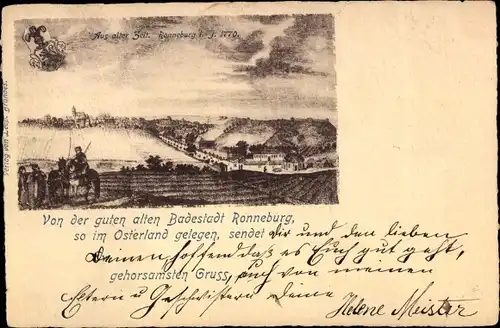 Aus alter Zeit. Ronneburg i. J. 1770.
Verlag von
Von der guten alten Badestadt Ronneburg,
so im Osterland gelegen, sendet Dir und den lieben
Deinen, hoffend daß es Euch gut geht,
gehorsamsten Gruss, auch von meinen
Eltern u Geschwistern Deine Helene Meister